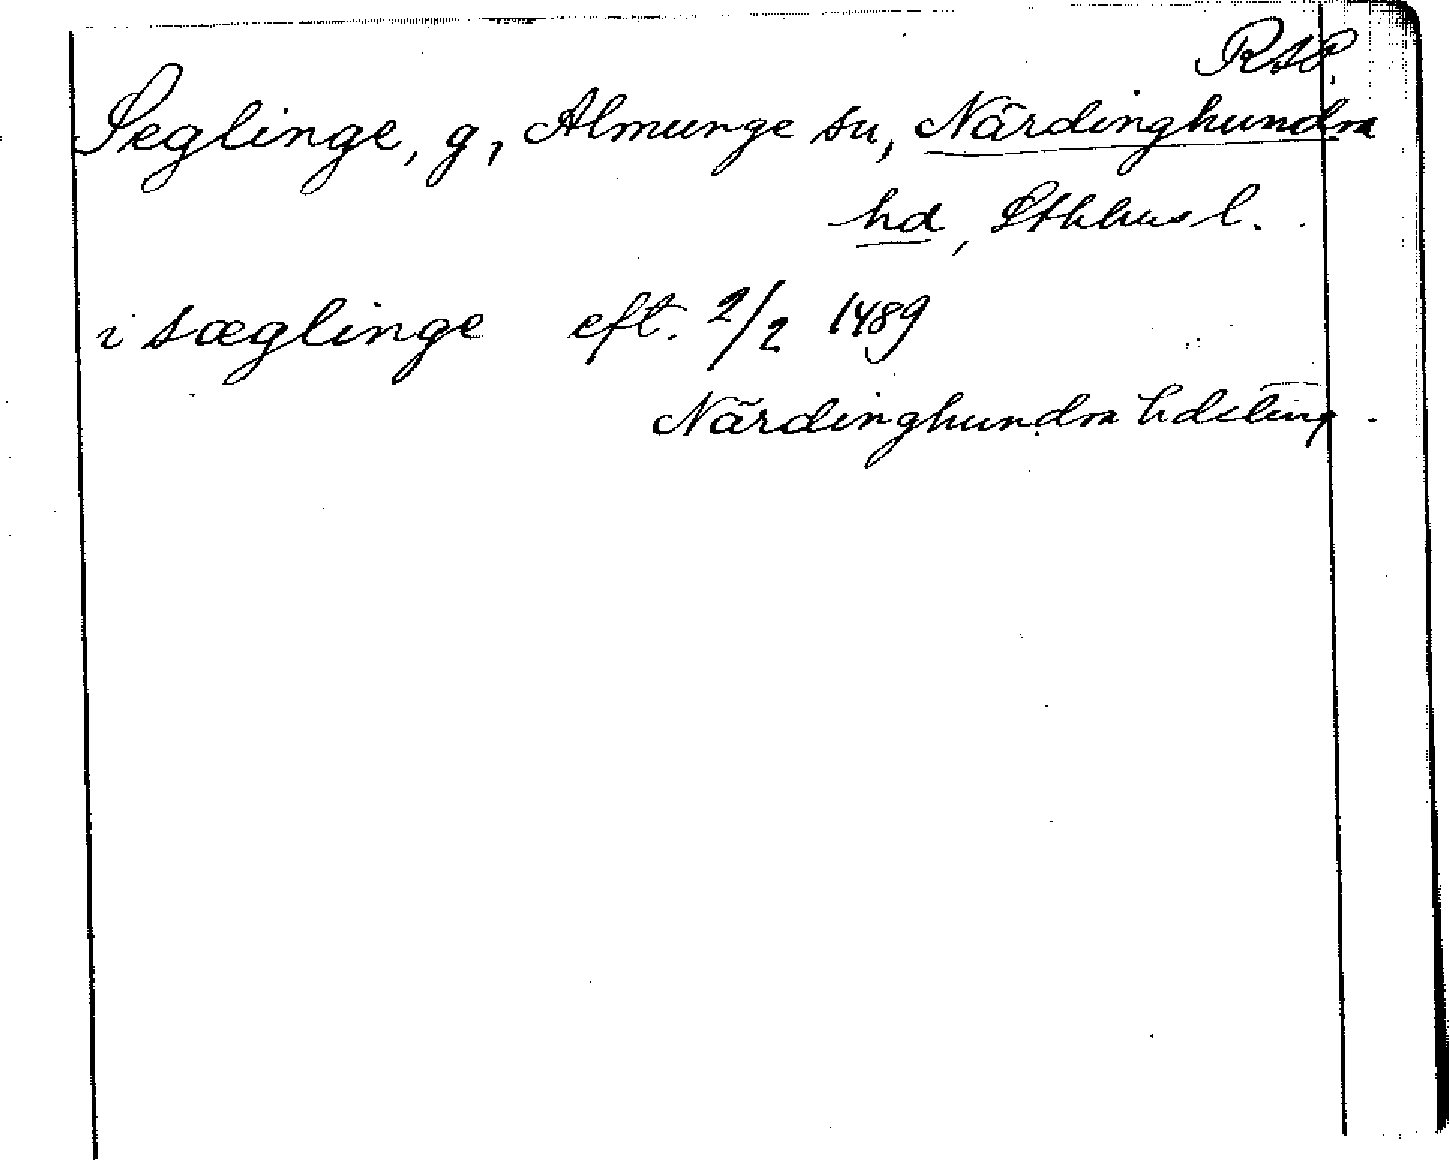 RAP.
Seglinge, g, Almunge sn, Närdinghundra
hd, Sthlms l.
i sæglinge eft. 2/2 1489
Närdinghundra hdsting.